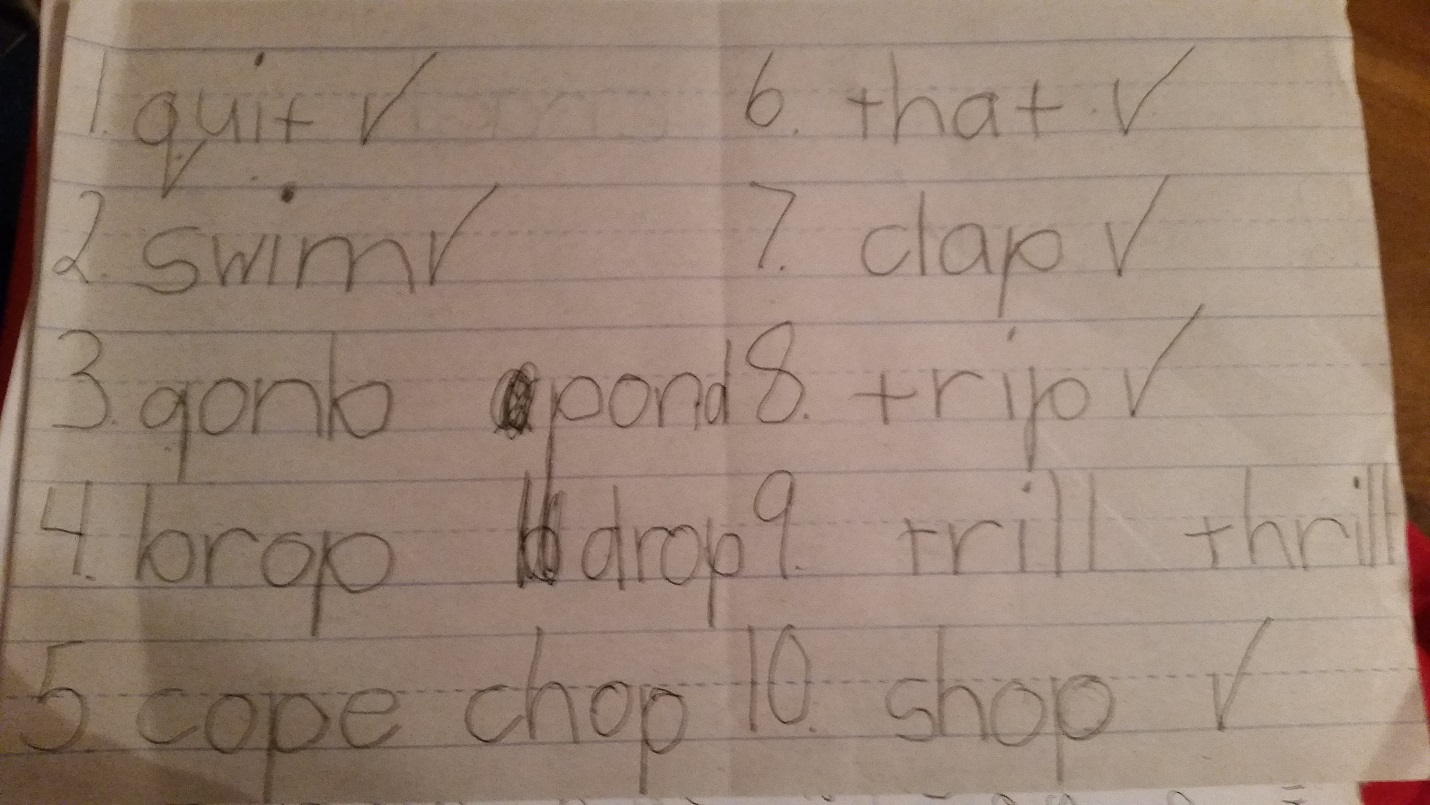 1. quit ✓
2. swim ✓
3. gonb pond
4. brop drop
5. cope chop
6. that ✓
7. clap ✓
8. trip ✓
9. trill thrill
10. shop ✓